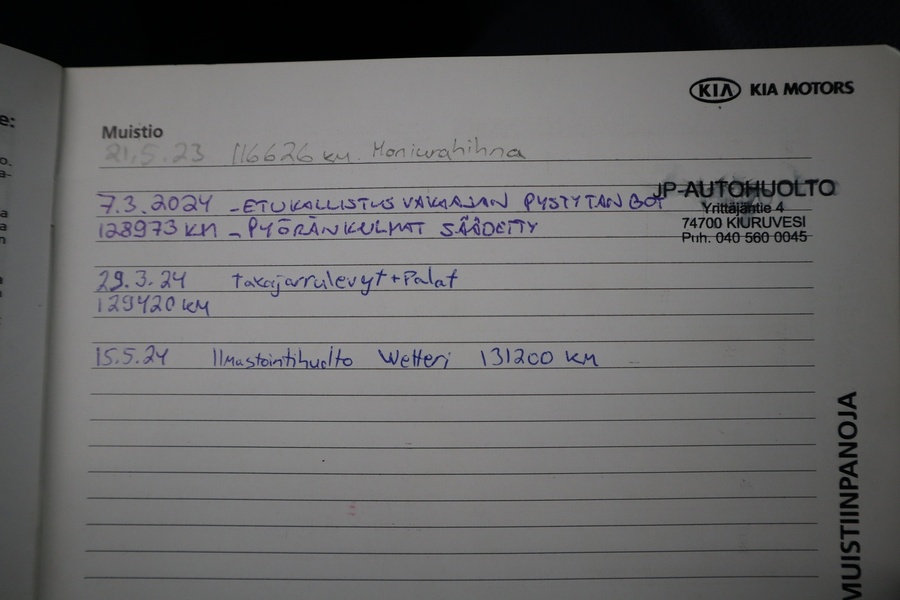 KIA KIA MOTORS
Muistio
21.5.23 116626 km. Moniurahihna
7.3.2024 - ETUKALLISTUSVAKAAJAN PYSTYTANGOT
JP-AUTOHUOLTO
Yrittäjäntie 4
128973 KM - PYÖRÄNKULMAT SÄÄDETTY
74700 KIURUVESI
Puh. 040 560 0045
29.3.24 Takajarrulevyt + Palat
129420 KM
15.5.24 Ilmastointihuolto Wetteri 131200 KM
MUISTIINPANOJA